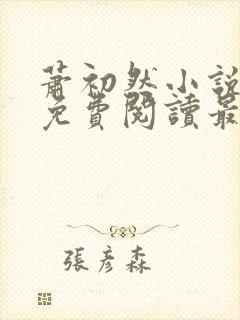 蕭初然小說
免費閱讀最
張彥森